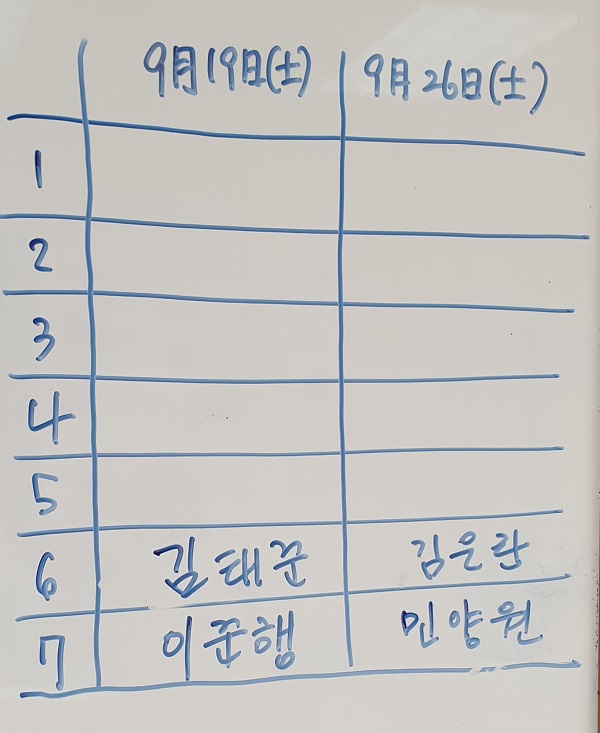 9月19日(土) 9月26日(土)
1
2
3
4
5
6 김태준 김은란
7 이준행 민양원